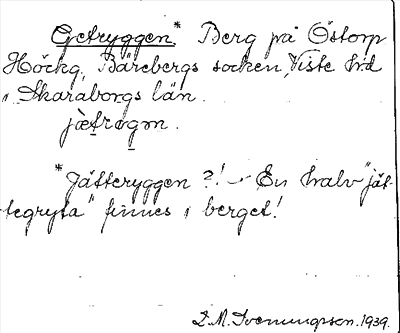 Getryggen* Berg på Östorp
Höckg. Bärebergs socken, Viste hrd
i Skaraborgs län.
jètrøgm.
*"Jätteryggen?! – En halv "jät-
tegryta" finnes i berget!
L.M. Svenungsson. 1939.